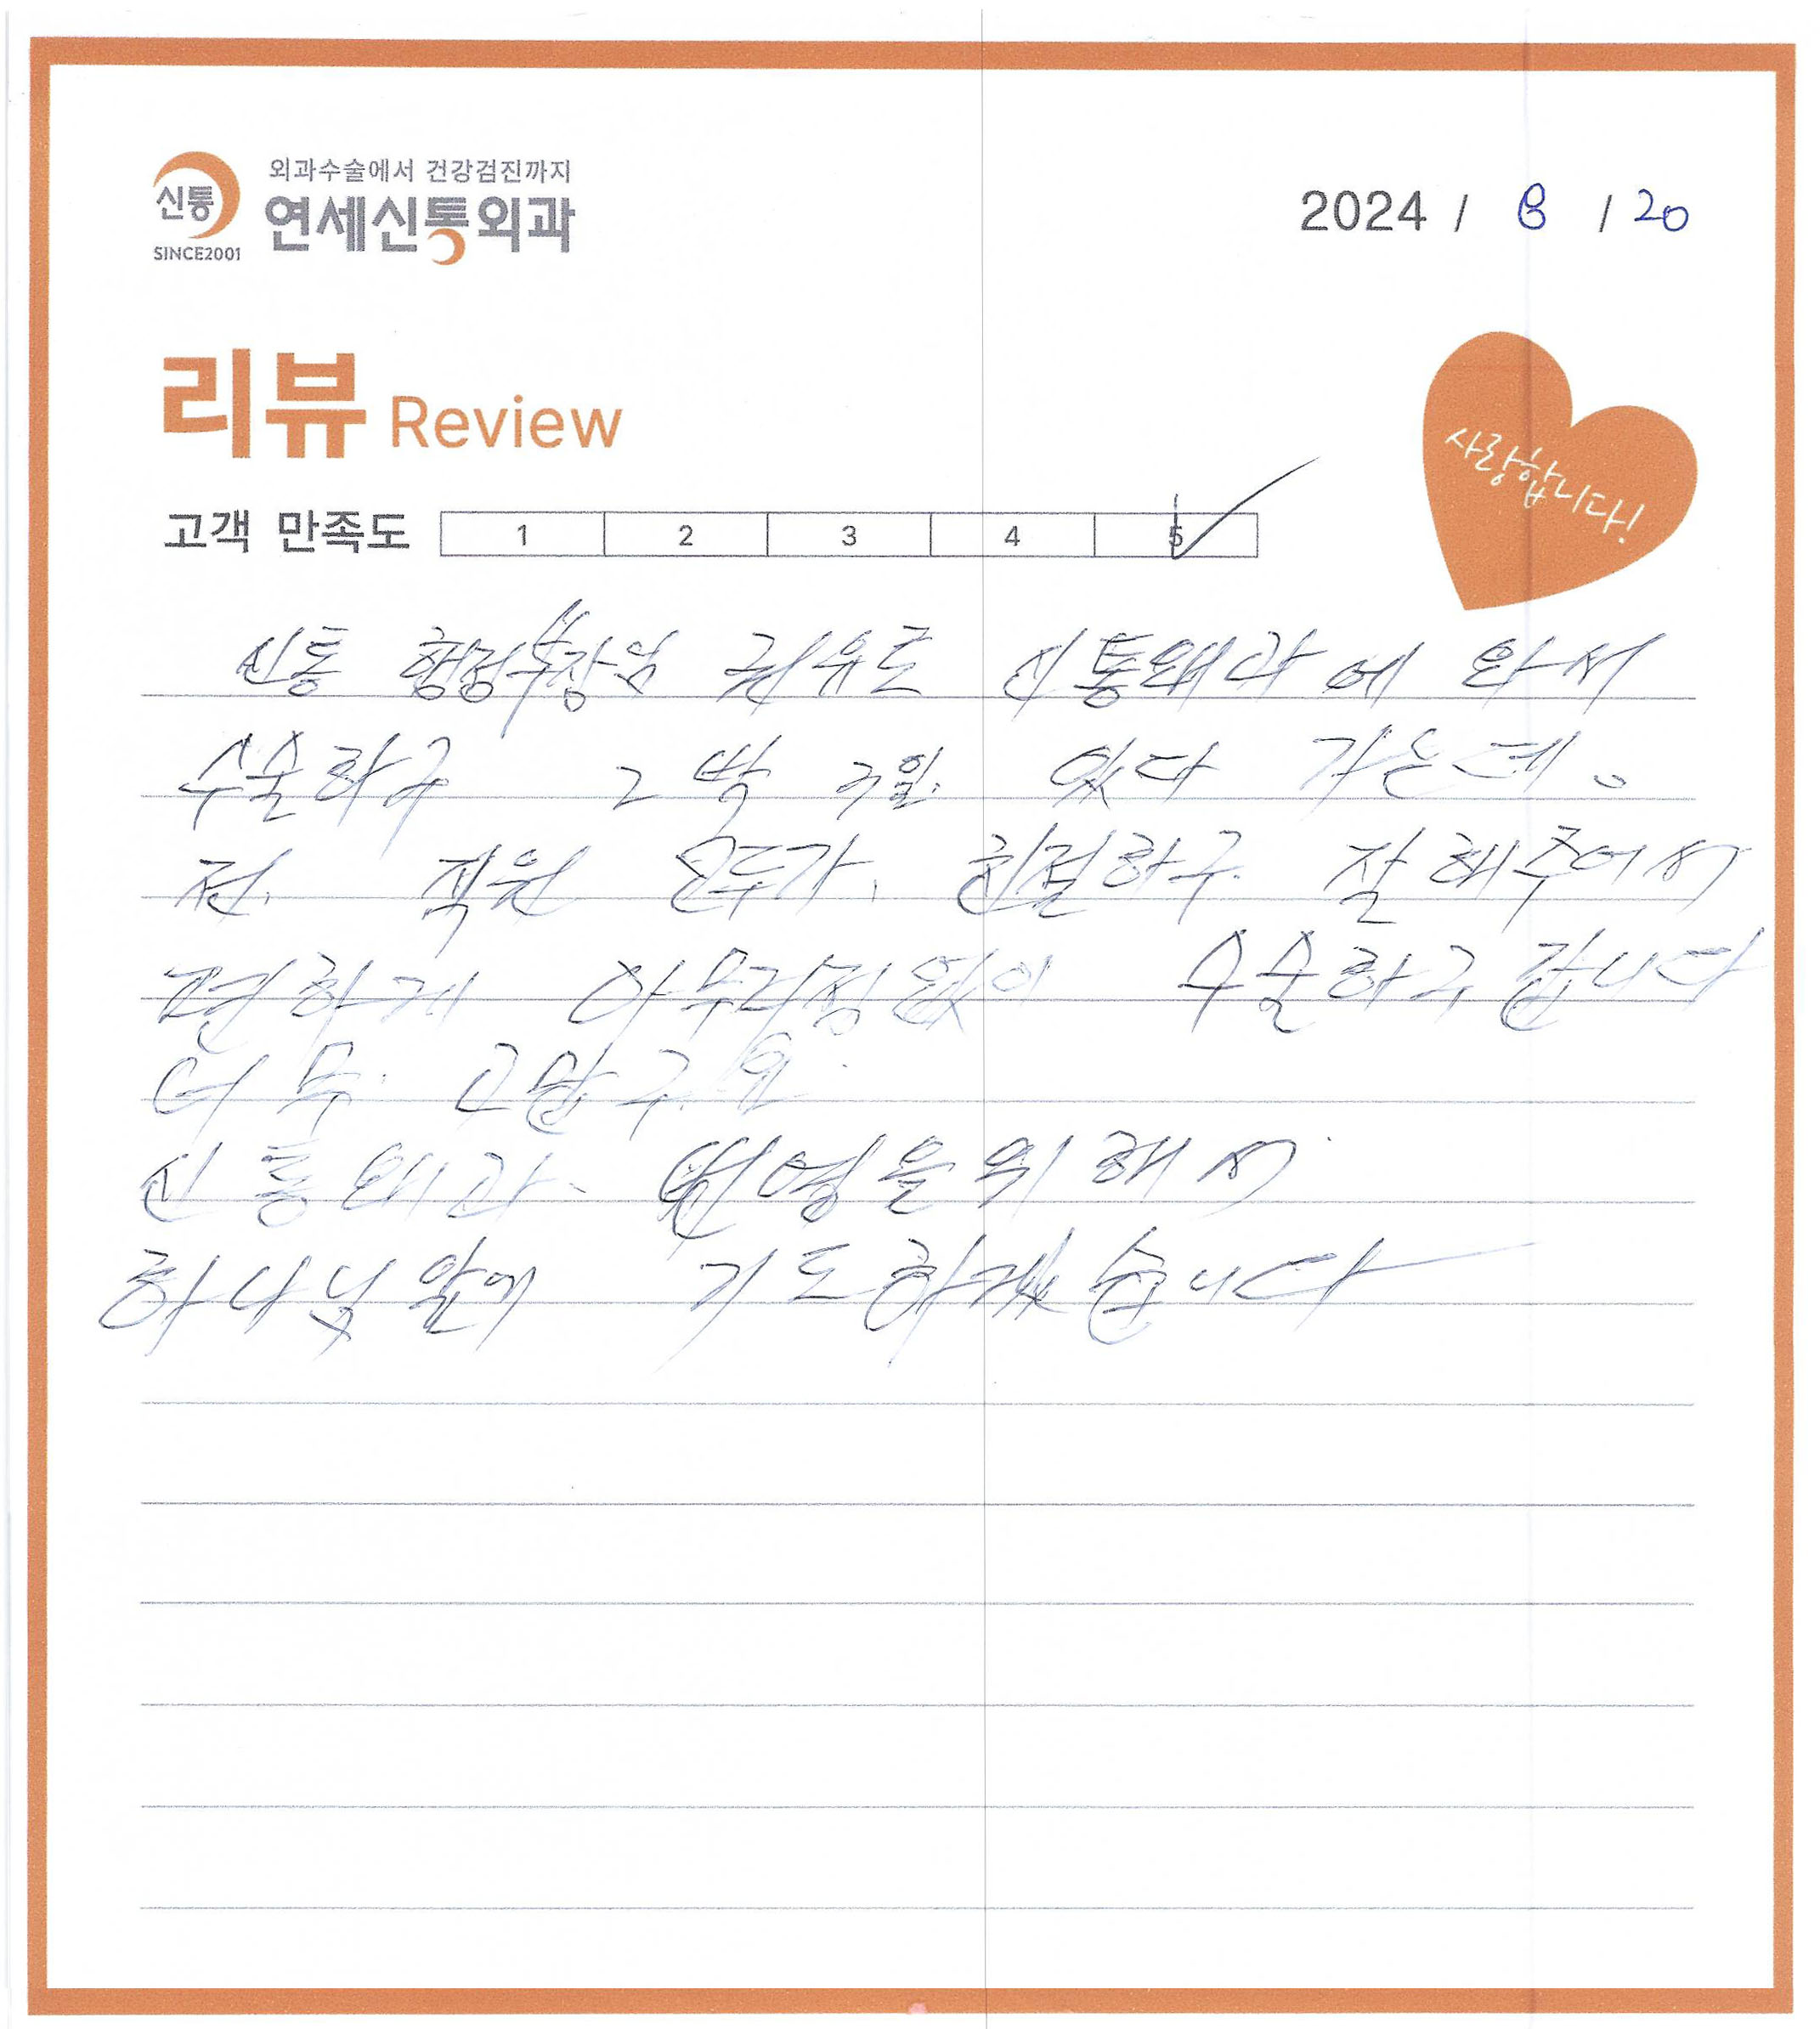 신통
SINCE2001
외과수술에서 건강검진까지
연세신통외과
2024 / 8 / 20
리뷰 Review
사랑합니다!
고객 만족도 1 2 3 4 5
신통 행정부장님 권유로 신통왜과에 와서
수술하구 2박 3일. 있다 가는데。
전. 직원 모두가. 친절하구. 잘 해주어서
편하게 아무걱정없이 수술하구 갑니다
너무. 고맙구요.
신통왜과. 번영을 위해서.
하나님 앞에 기도하겠습니다